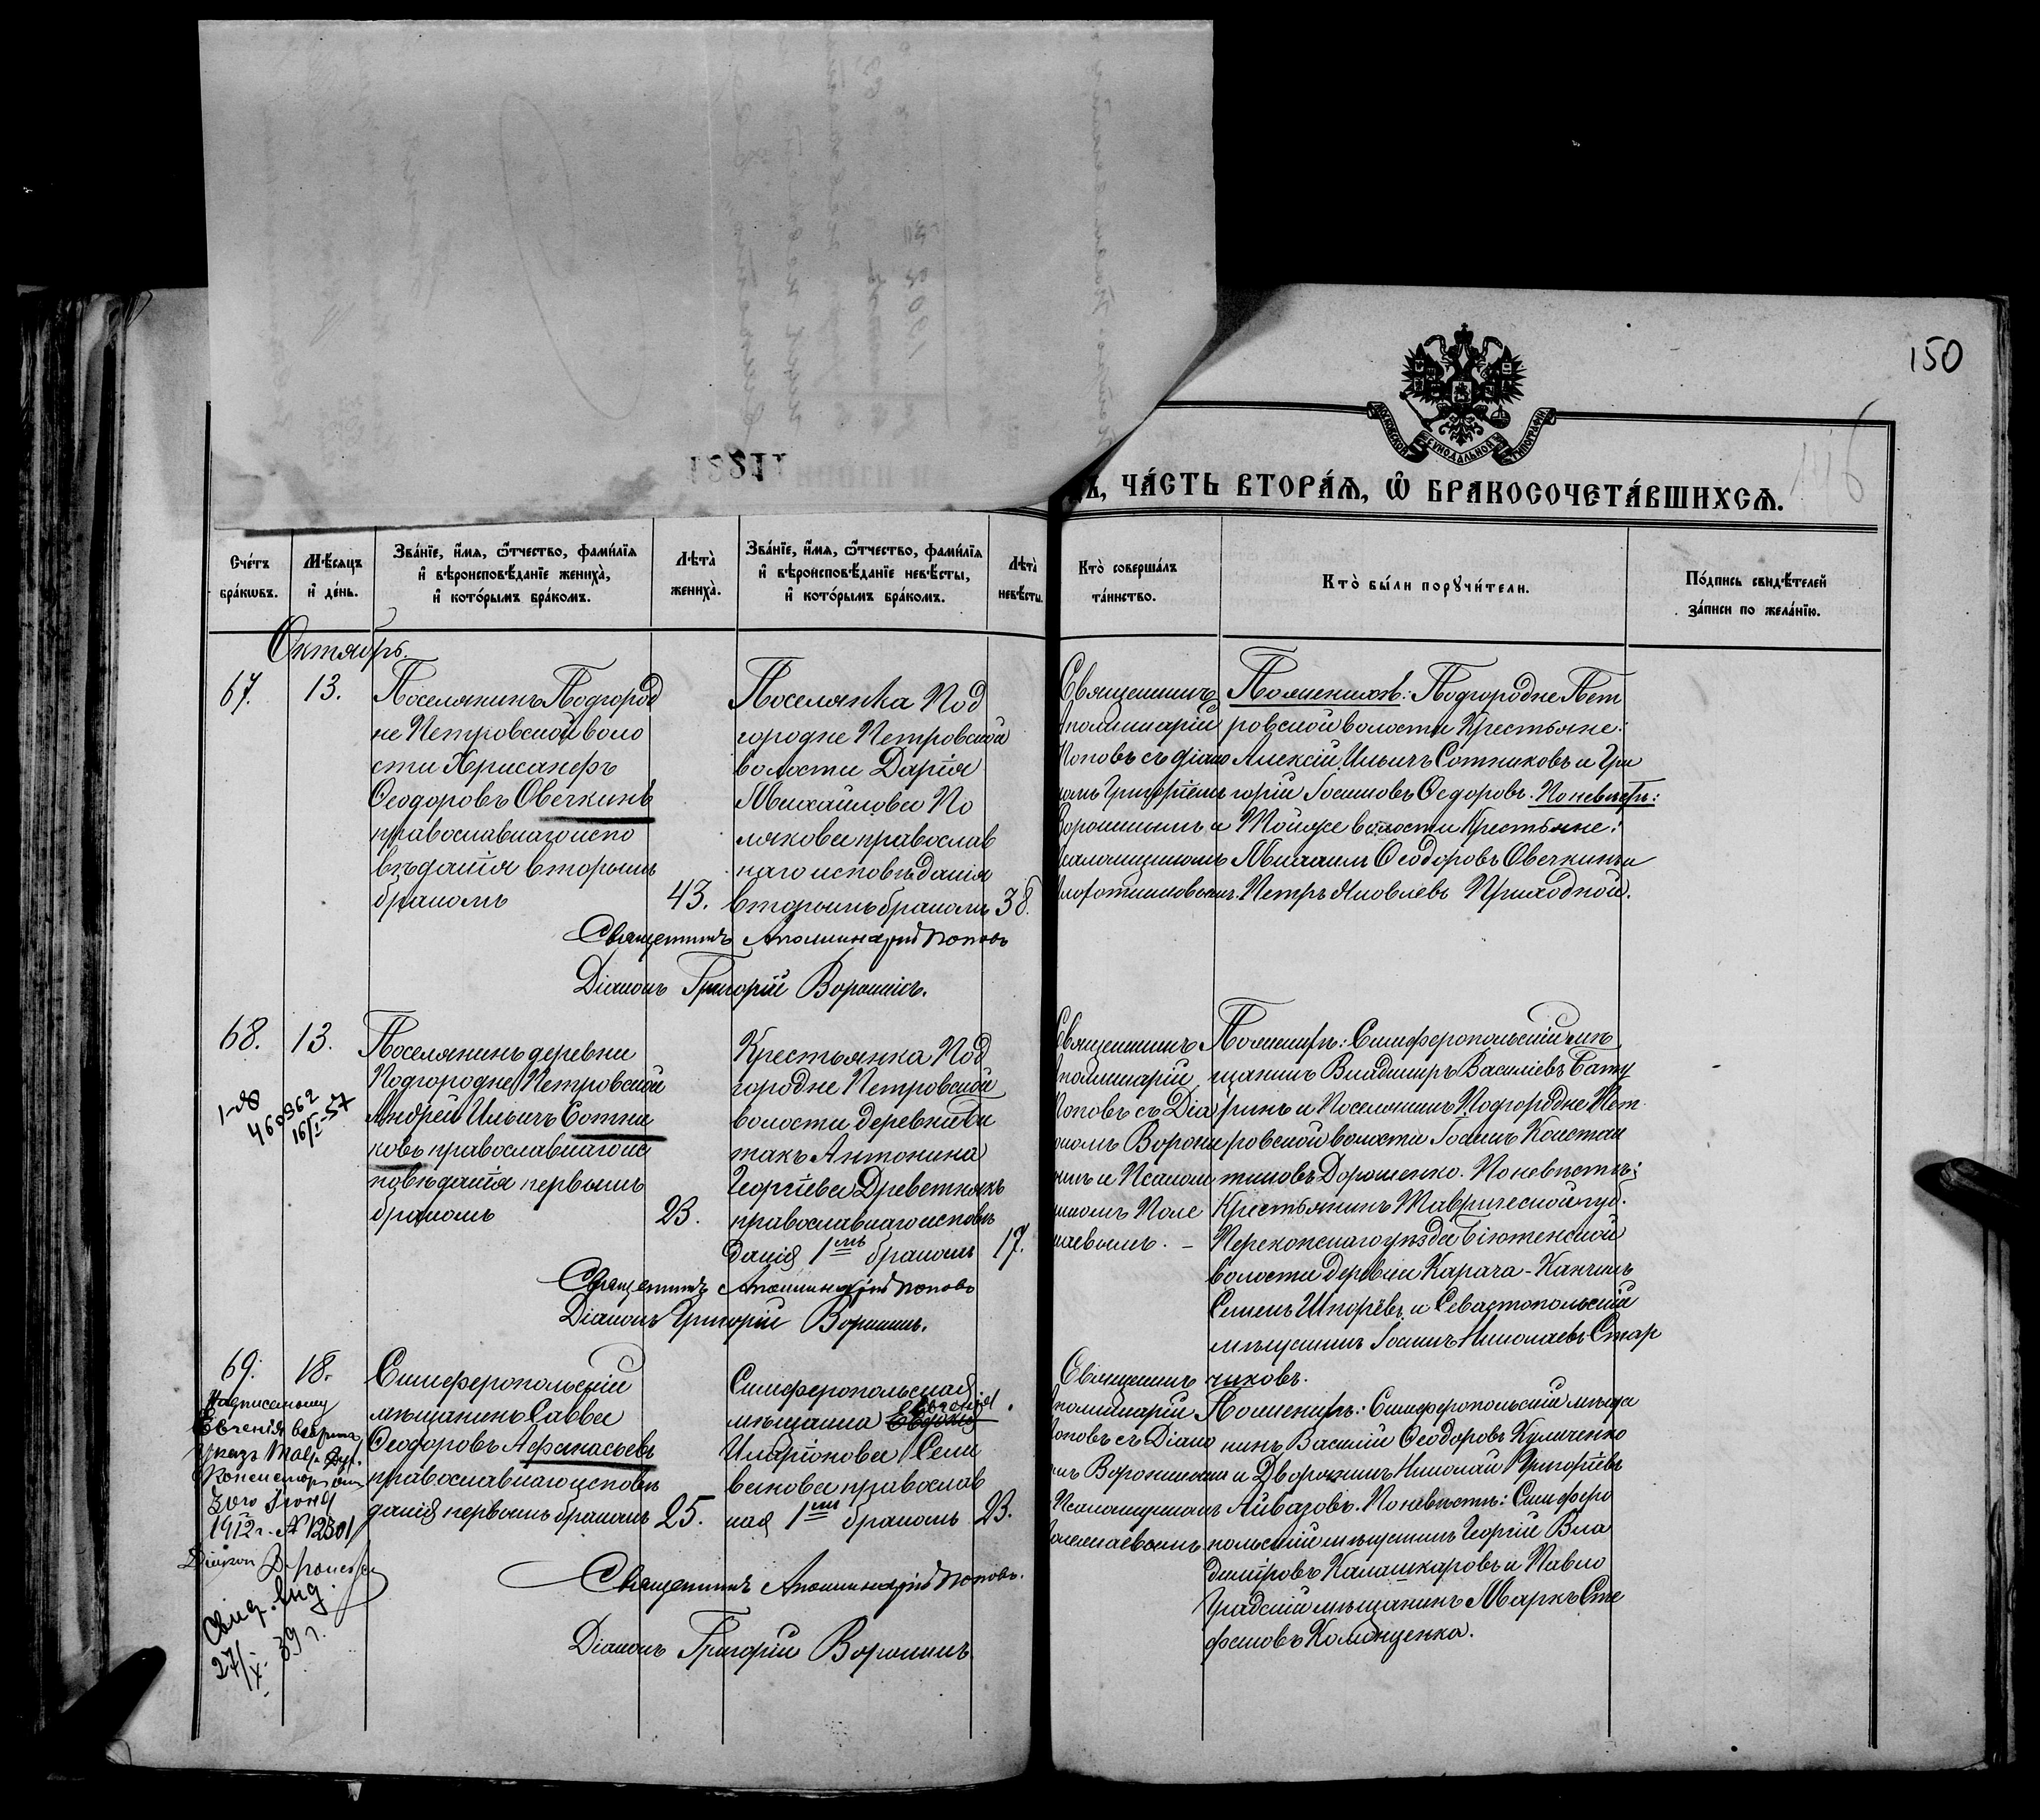 150
146
МОСКОВСКОЙ СѴНОДАЛЬНОЙ ТИПОГРАФІИ
Ъ, ЧА́СТЬ ВТОРА́Ѧ, Ѡ҆ БРАКОСОЧЕТА́ВШИХСѦ.
Сче́тъ бра́кѡвъ.
Мѣ́сѧцъ и҆ де́нь.
Зва́нїе, и҆́мѧ, ѻ҆́тчество, фами́лїѧ
и҆ вѣроисповѣ́данїе жениха̀,
и҆ кото́рымъ бра́комъ.
Лѣта̀ жениха̀.
Зва́нїе, и҆́мѧ, ѻ҆́тчество, фами́лїѧ
и҆ вѣроисповѣ́данїе невѣ́сты,
и҆ кото́рымъ бра́комъ.
Лѣта̀ невѣ́сты.
Кто̀ соверша́лъ та́инство.
Кто̀ бы́ли порꙋчи́тели.
По́дпись свидѣ́телей за́писи по жела́нїю.
Октябрь.
67.
13.
Поселянинъ Подгород
не Петровской воло
сти Хрисанфъ
Ѳеодоровъ Овечкинъ
православнаго испо
вѣданія вторымъ
бракомъ
43.
Поселянка Под
городне Петровской
волости Дарія
Михайлова По
лякова православ
наго исповѣданія
вторымъ бракомъ
38.
Священникъ
Аполлинарій
Поповъ съ діако
номъ Григоріемъ
Воронинымъ и
псаломщикомъ
Плотниковымъ.
По женихѣ: Подгородне Пет
ровской волости Крестьяне:
Алексій Ильичъ Сотниковъ и Гри
горій Іоанновъ Ѳедоровъ. По невѣстѣ:
Тойже волости Крестьяне:
Михаилъ Ѳеодоровъ Овечкинъ и
Петръ Яковлевъ Приходной.
Священникъ Аполлинарій Поповъ
Діаконъ Григорій Воронинъ.
68.
13.
460962
16/I-57
Поселянинъ деревни
Подгородне Петровской
Андрей Ильичъ Сотни
ковъ православнаго ис
повѣданія первымъ
бракомъ
23.
Крестьянка Под
городне Петровской
волости деревни Би
такъ Антонина
Георгіева Древетнякъ
православнаго исповѣ
данія 1мъ бракомъ
17.
Священникъ
Аполлинарій
Поповъ съ Діа
кономъ Ворони
нымъ и Псалом
щикомъ Поле
жаевымъ. –
По женихѣ: Симферопольскій мѣ
щанинъ Владимиръ Василіевъ Бату
ринъ и Поселянинъ Подгородне Пет
ровской волости Іоаннъ Констан
тиновъ Дорошенко. По невѣстѣ:
Крестьянинъ Таврической губ.
Перекопскаго уѣзда Біютенской
волости деревни Карача-Канчикъ
Семенъ Игорѣвъ и Севастопольскій
мѣщанинъ Іоаннъ Николаевъ Стар
чиковъ.
Священникъ Аполлинарій Поповъ
Діаконъ Григорій Воронинъ.
69.
18.
Надписанному
Евгенія вѣрить
Указъ Тавр. Дух.
Консисторіи отъ
30го Іюня
1912 г. № 12301
Діаконъ
27/X. 39 г.
Симферопольскій
мѣщанинъ Савва
Ѳеодоровъ Аѳанасьевъ
православнаго исповѣ
данія первымъ бракомъ
25.
Симферопольская
Евгенія
мѣщанка Евдокія
Иларіонова Сели
ванова православ
ная 1мъ бракомъ
23.
Священникъ
Аполлинарій
Поповъ съ Діако
номъ Воронинымъ и
Псаломщикомъ
Полежаевымъ
По женихѣ: Симферопольскій мѣща
нинъ Василій Ѳеодоровъ Куличенко
и Дворянинъ Николай Григоріевъ
Айвазовъ. По невѣстѣ: Симферо
польскій мѣщанинъ Георгій Вла
диміровъ Калашкаровъ и Павло
градскій мѣщанинъ Маркъ Сте
фановъ Коломценко.
Священникъ Аполлинарій Поповъ.
Діаконъ Григорій Воронинъ